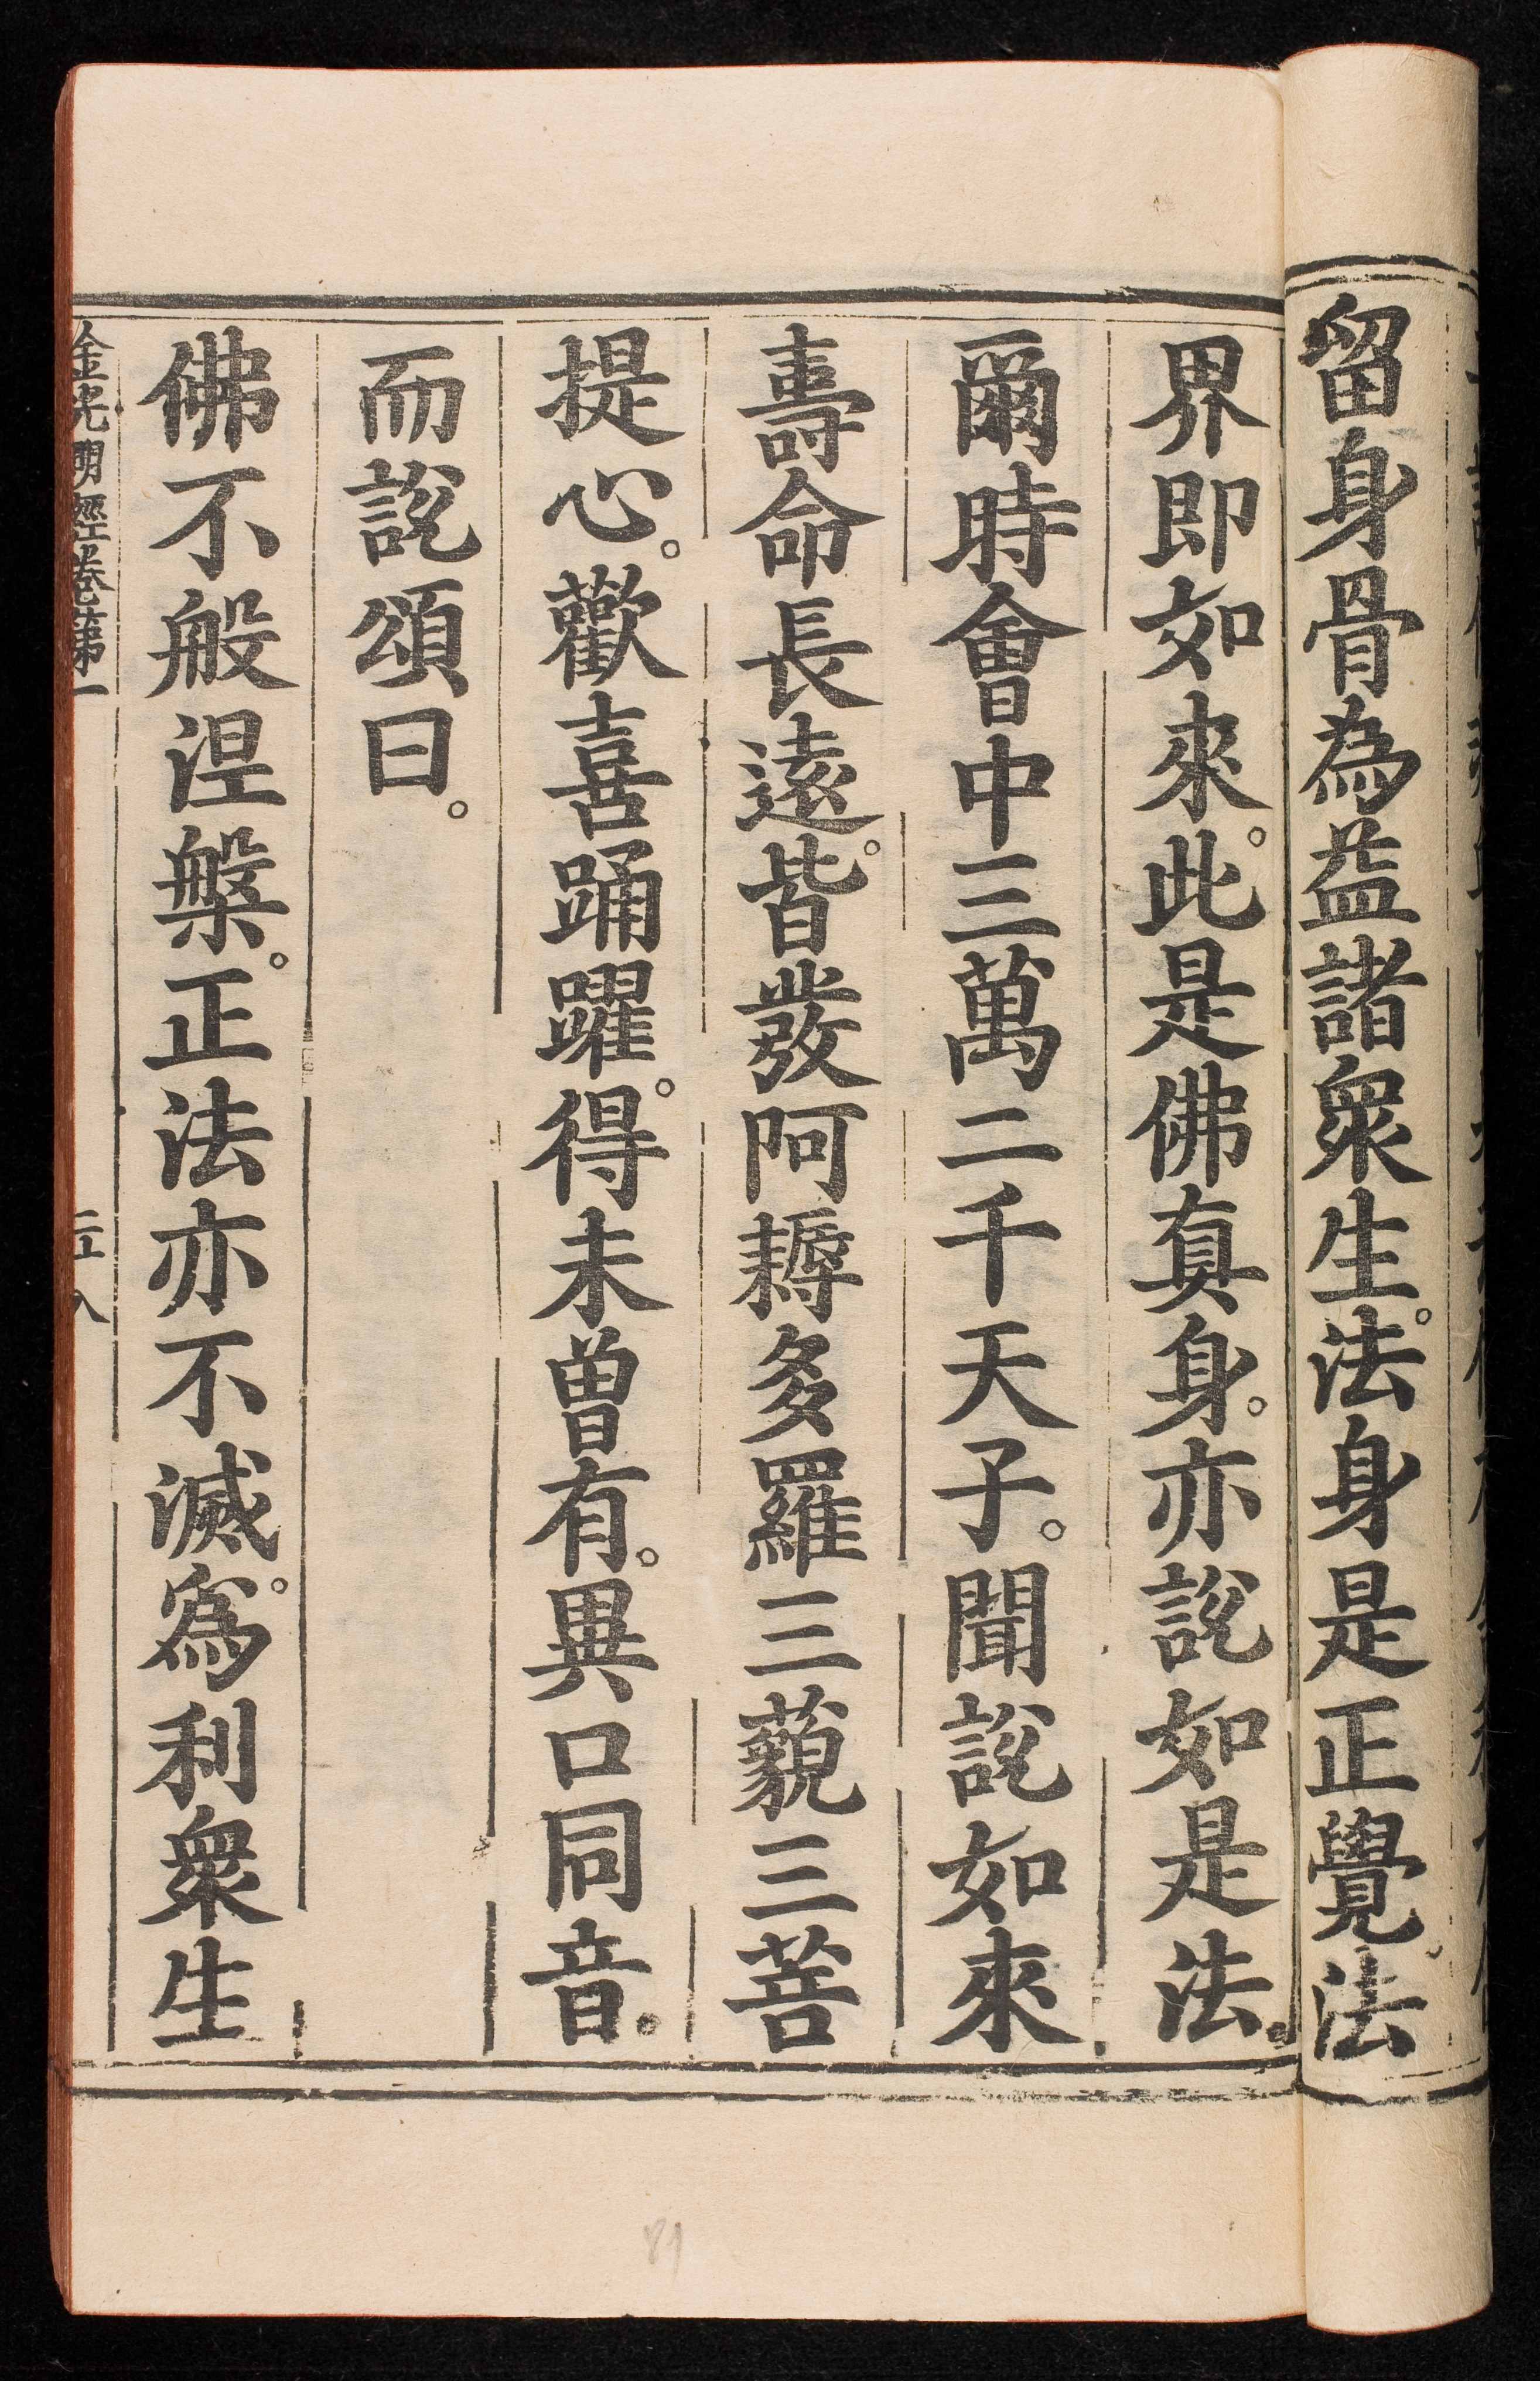 留身骨為益諸衆生。法身是正覺。法
界即如來。此是佛真身。亦說如是法。
爾時會中三萬二千天子。聞說如來
壽命長遠。皆發阿耨多羅三藐三菩
提心。歡喜踊躍。得未曾有。異口同音。
而說頌曰。
佛不般涅槃。正法亦不滅。爲利衆生
金光明經卷第一